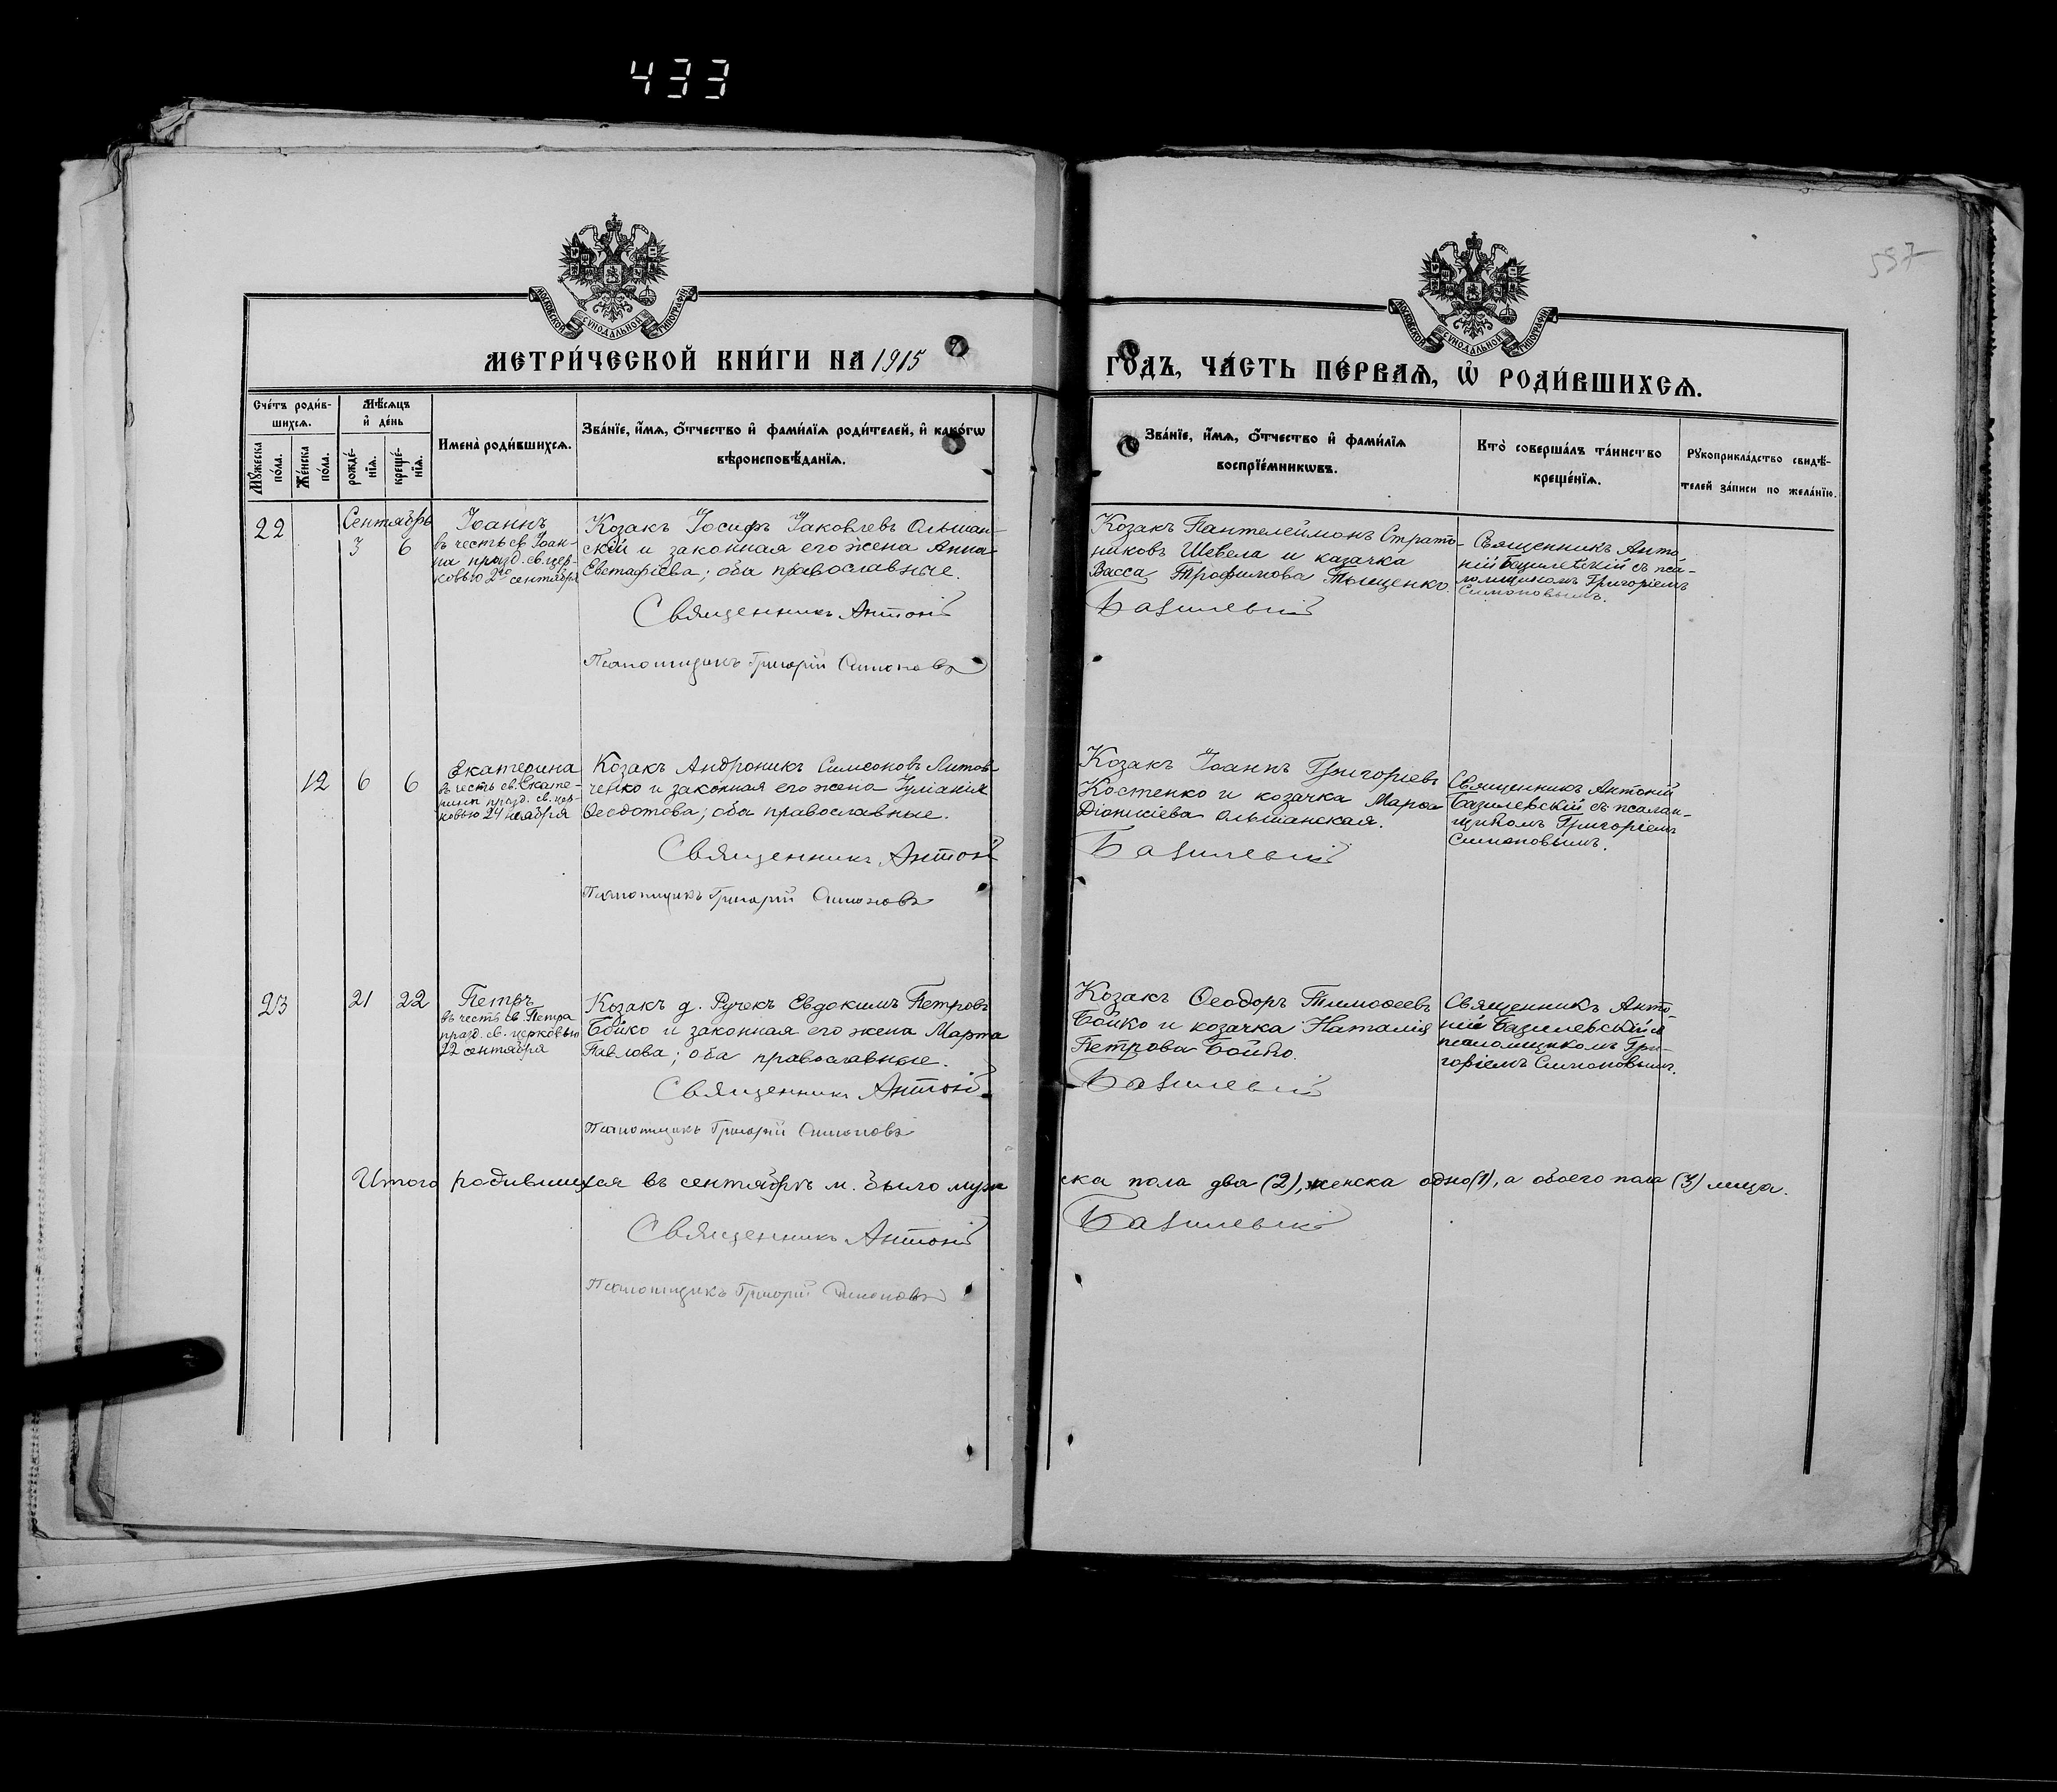 433
557
МОСКОВСКОЙ СѴНОДАЛЬНОЙ ТИПОГРАФІИ
МОСКОВСКОЙ СѴНОДАЛЬНОЙ ТИПОГРАФІИ
МЕТРИ́ЧЕСКОЙ КНИ́ГИ НА 1915
ГО́ДЪ, ЧА́СТЬ ПЕ́РВАѦ, Ѡ҆ РОДИ́ВШИХСѦ.
Сче́тъ роди́в-
шихсѧ.
Мꙋ́жеска
по́ла.
Же́нска
по́ла.
Мѣ́сѧцъ
и҆ де́нь
рожде́-
нїѧ.
креще́-
нїѧ.
Имена̀ роди́вшихсѧ.
Зва́нїе, и҆́мѧ, ѻ҆́тчество и҆ фами́лїѧ роди́телей, и҆ како́гѡ
вѣроисповѣ́данїѧ.
Зва́нїе, и҆́мѧ, ѻ҆́тчество и҆ фами́лїѧ
воспрїе́мникѡвъ.
Кто̀ соверша́лъ та́инство
креще́нїѧ.
Рꙋкоприкла́дство свидѣ́-
телей за́писи по жела́нїю.
22
Сентябрь
3 6
Іоаннъ
въ честь св. Іоан-
на празд. св. цер-
ковью 2го сентября
Козакъ Іосифъ Іаковлевъ Ольшан-
скій и законная его жена Анна
Евстафіева; оба православные.
Священникъ Антоній
Псаломщикъ Григорій Симоновъ
Козакъ Пантелеймонъ Страто-
никовъ Шевела и казачка
Васса Трофимова Тыщенко.
Базилевскій
Священникъ Анто-
ній Базилевскій съ пса-
ломщикомъ Григоріемъ
Симоновымъ.
12 6 6
Екатерина
въ честь св. Екате-
рины празд. св. цер-
ковью 24 ноября
Козакъ Андроникъ Симеоновъ Литов-
ченко и законная его жена Іуліанія
Ѳеодотова; оба православные.
Священникъ Антоній
Псаломщикъ Григорій Симоновъ
Козакъ Іоаннъ Григоріевъ
Костенко и козачка Марѳа
Діонисіева Ольшанская.
Базилевскій
Священникъ Антоній
Базилевскій съ псалом-
щикомъ Григоріемъ
Симоновымъ.
23 21 22
Петръ
въ честь св. Петра
празд. св. церковью
22 сентября
Козакъ д. Ручекъ Евдокимъ Петровъ
Бойко и законная его жена Марта
Павлова; оба православные.
Священникъ Антоній
Псаломщикъ Григорій Симоновъ
Козакъ Ѳеодоръ Тимоѳеевъ
Бойко и козачка Наталія
Петрова Бойко.
Базилевскій
Священникъ Анто-
ній Базилевскій съ
псаломщикомъ Гри-
горіемъ Симоновымъ.
Итого родившихся въ сентябрѣ м. было муже
ска пола два (2), женска одно (1), а обоего пола (3) лица.
Священникъ Антоній
Базилевскій
Псаломщикъ Григорій Симоновъ